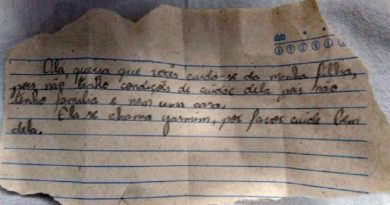 Ola, queria que vocês cuida-se da minha filha,
pois não tenho condições de cuidar dela pois não
tenho familia e nem uma casa.
Ela se chama yasmim, por favor cuide bem
dela.